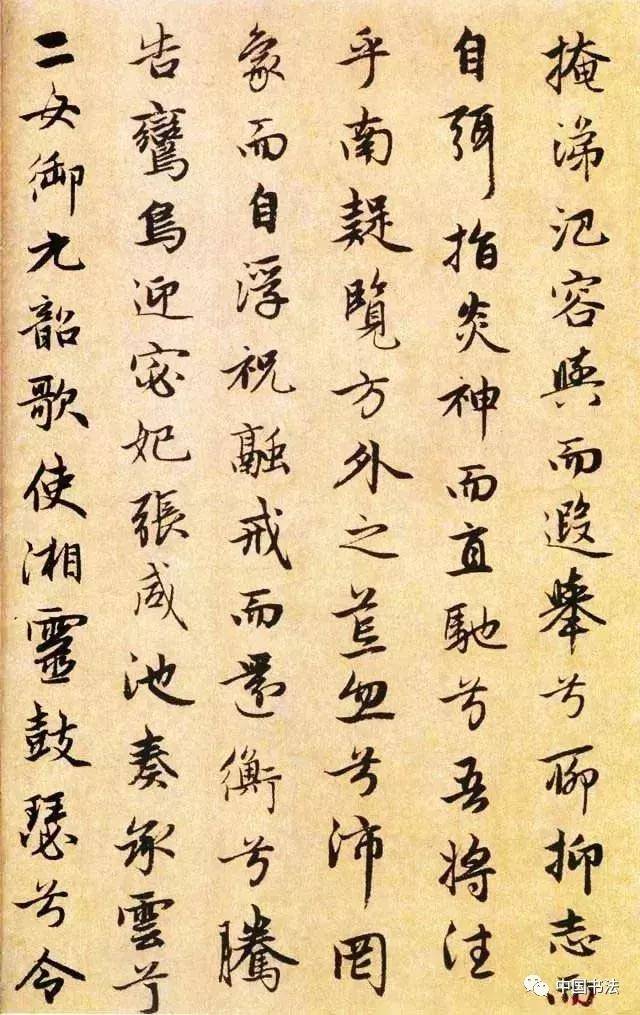 掩涕氾容與而遐舉兮聊抑志而
自弭指炎神而直馳兮吾將往
乎南疑覽方外之荒忽兮沛罔
象而自浮祝融戒而還衡兮騰
告鸞鳥迎宓妃張咸池奏承雲兮
二女御九韶歌使湘靈鼓瑟兮令
中国书法